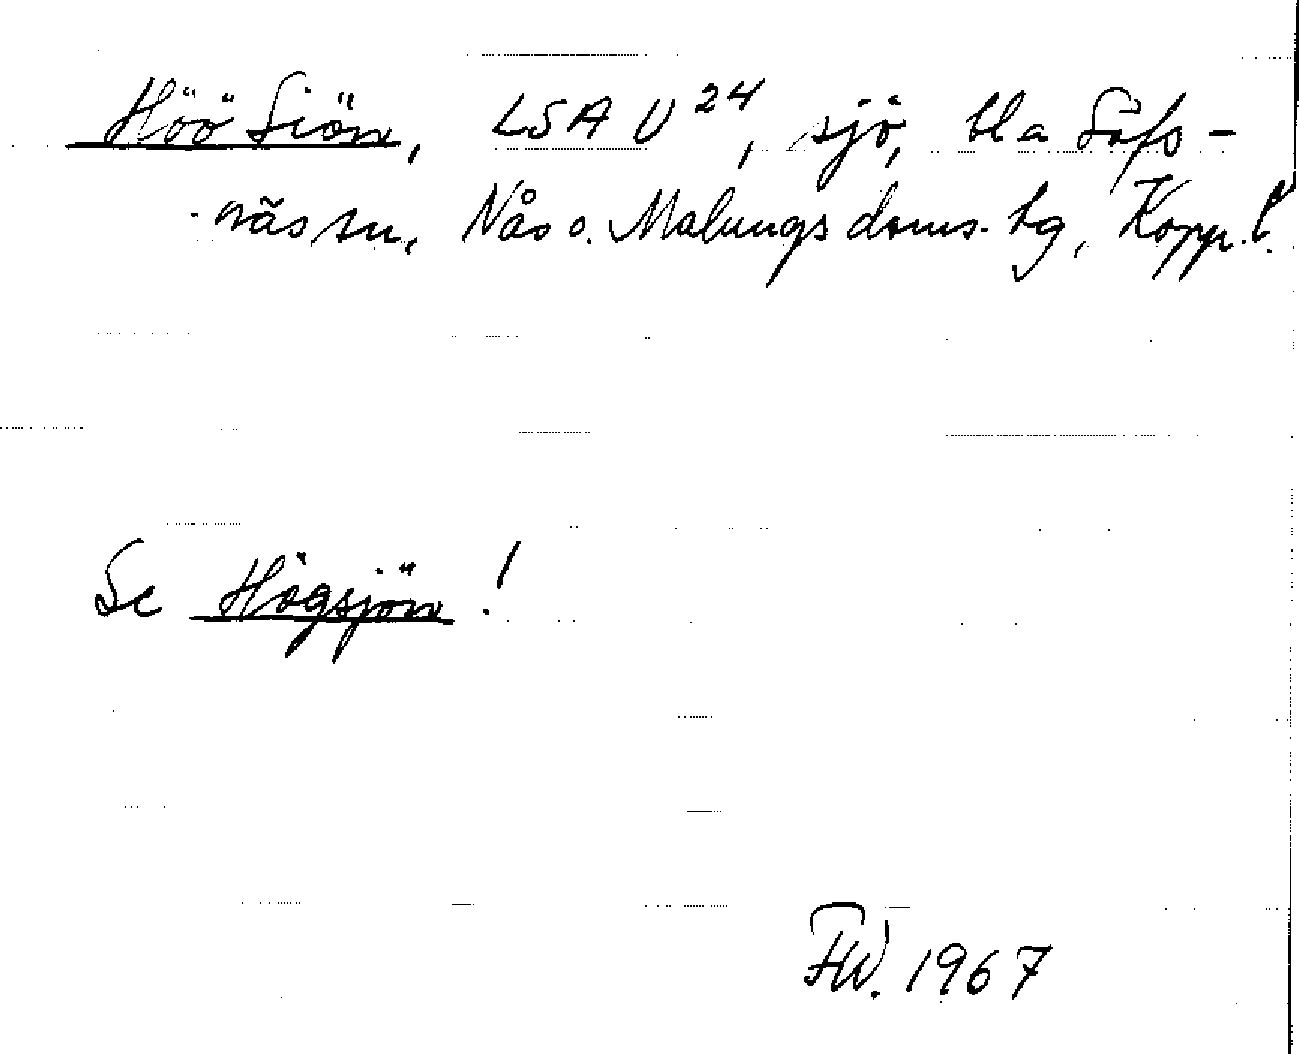 Höö Siön, LSA U 24, sjö, bl a Säfs-
näs sn, Nås o. Malungs doms. hg, Kopp. l.
Se Högsjön!
FW. 1967